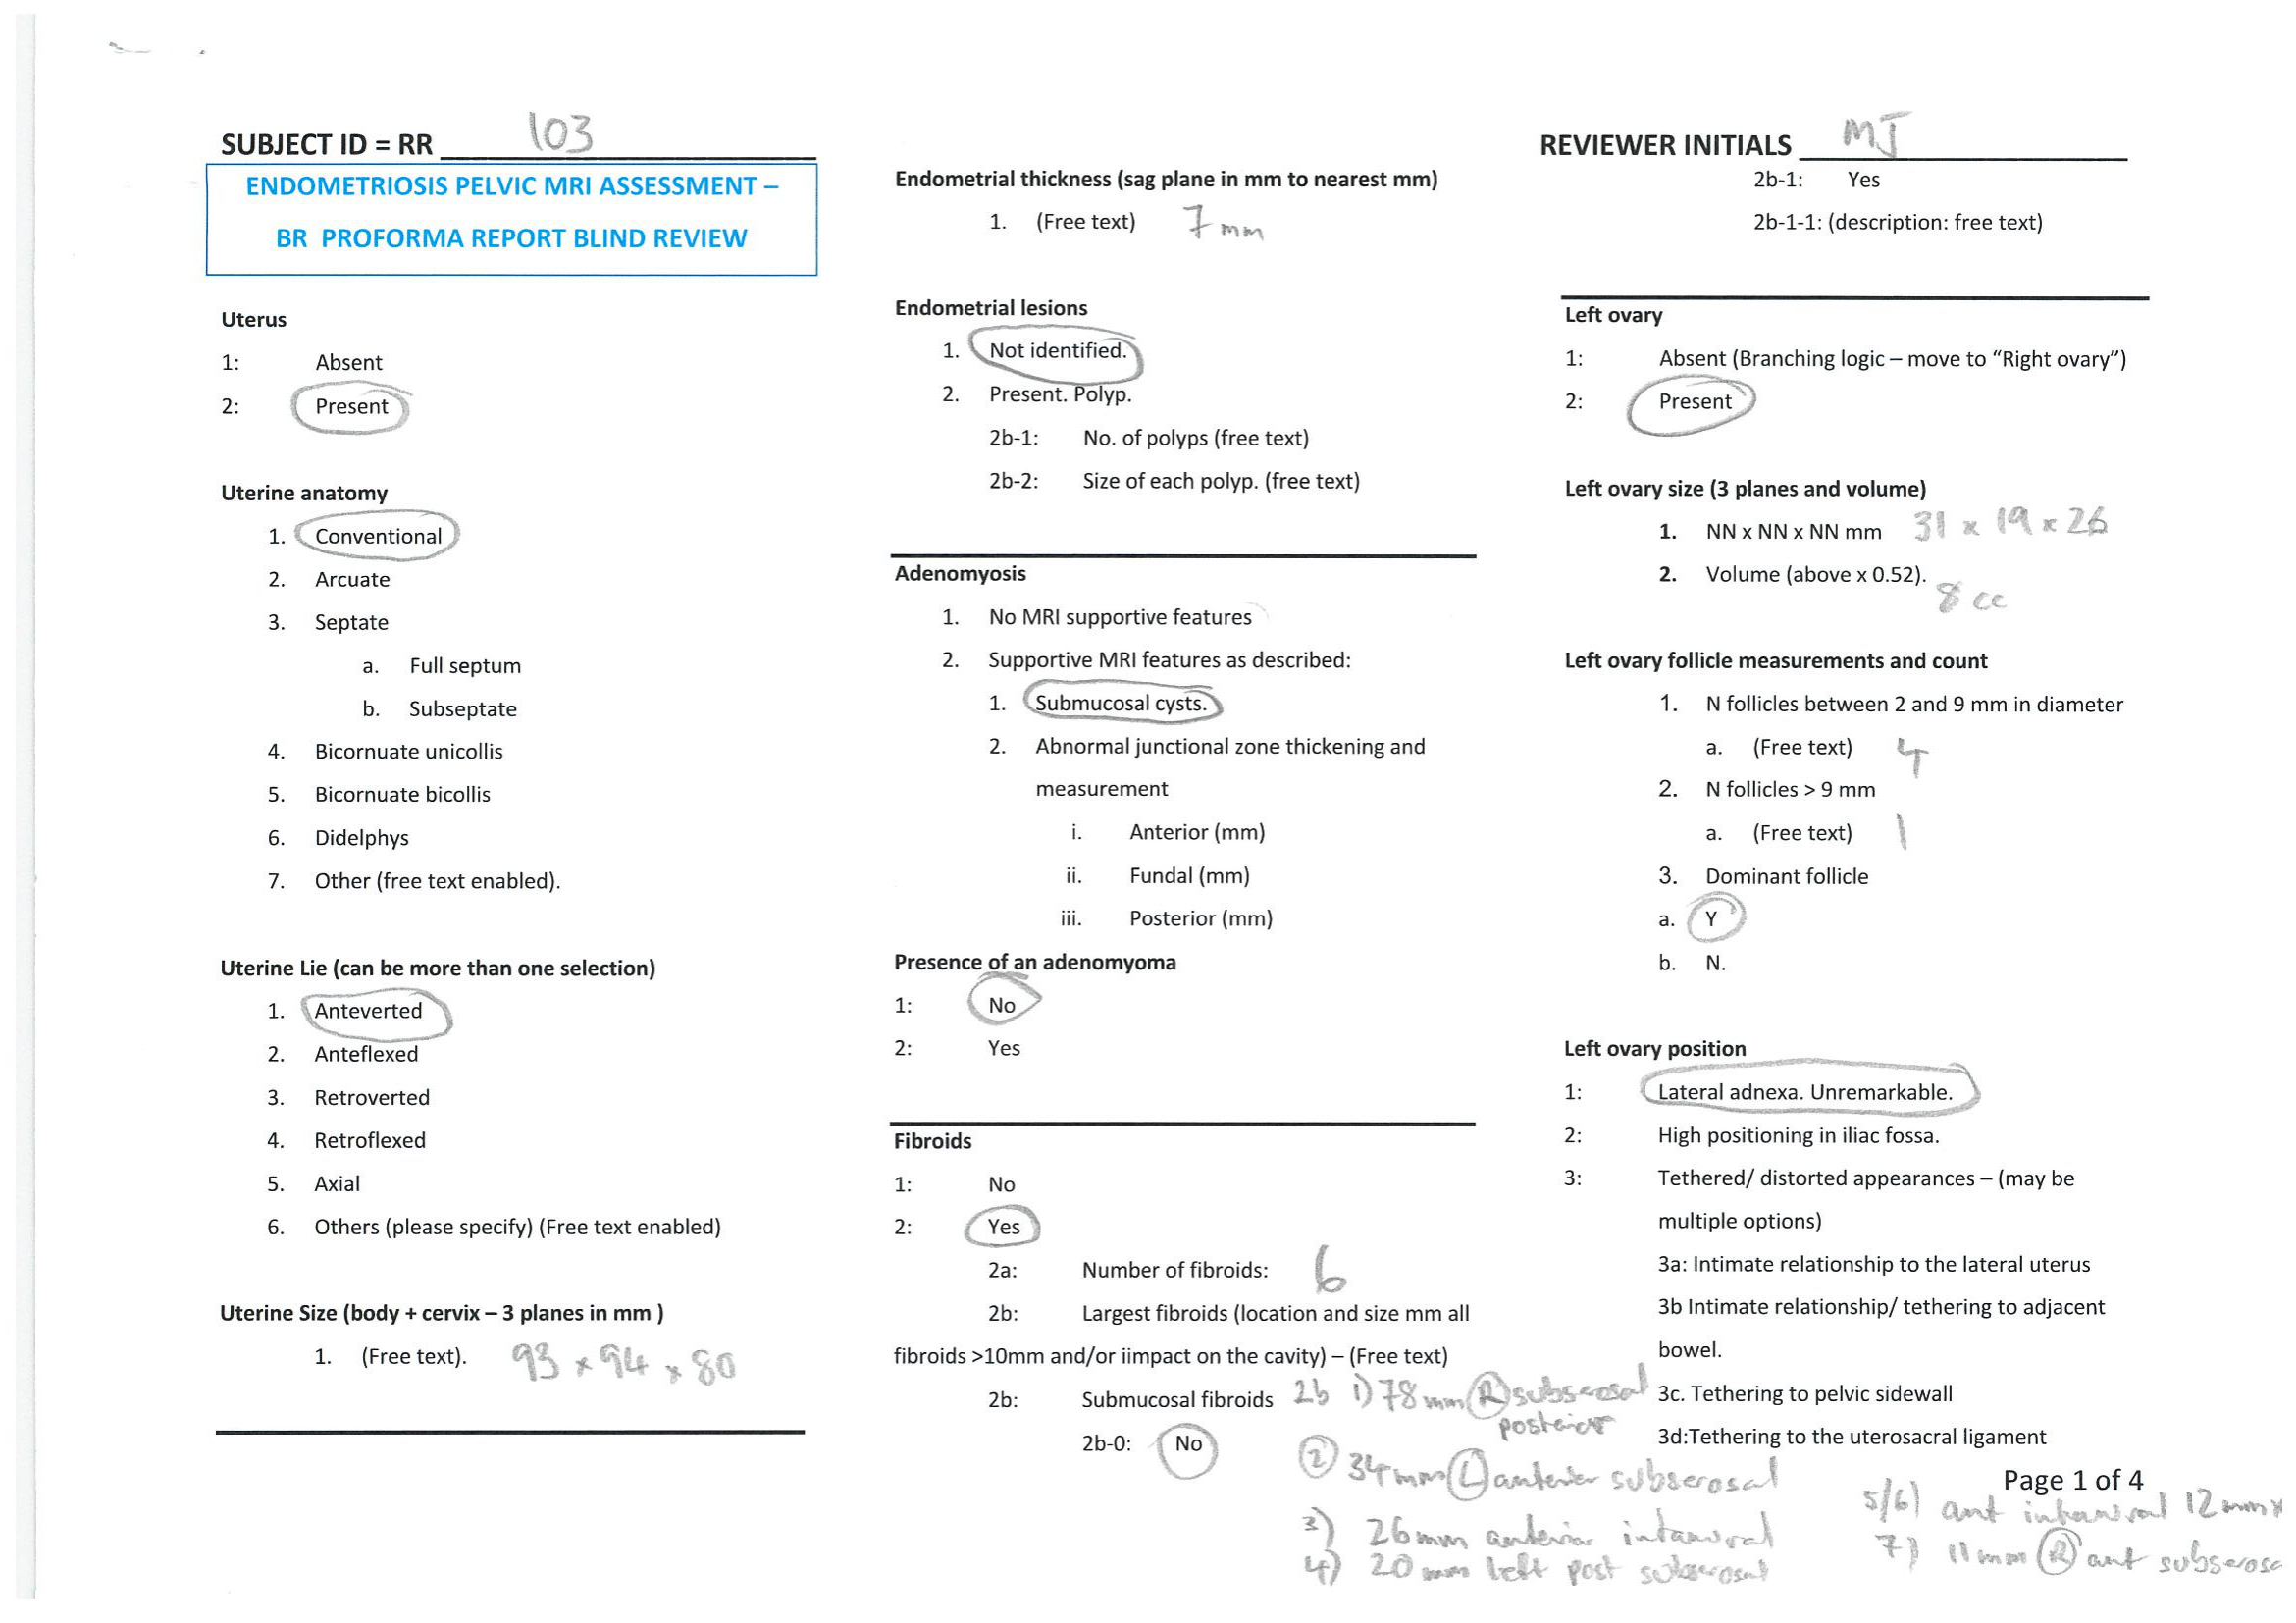 SUBJECT ID = RR 103
ENDOMETRIOSIS PELVIC MRI ASSESSMENT –
BR PROFORMA REPORT BLIND REVIEW
Uterus
1: Absent
2: Present
Uterine anatomy
1. Conventional
2. Arcuate
3. Septate
a. Full septum
b. Subseptate
4. Bicornuate unicollis
5. Bicornuate bicollis
6. Didelphys
7. Other (free text enabled).
Uterine Lie (can be more than one selection)
1. Anteverted
2. Anteflexed
3. Retroverted
4. Retroflexed
5. Axial
6. Others (please specify) (Free text enabled)
Uterine Size (body + cervix – 3 planes in mm )
1. (Free text). 93 x 94 x 80
Endometrial thickness (sag plane in mm to nearest mm)
1. (Free text) 7 mm
Endometrial lesions
1. Not identified.
2. Present. Polyp.
2b-1: No. of polyps (free text)
2b-2: Size of each polyp. (free text)
Adenomyosis
1. No MRI supportive features
2. Supportive MRI features as described:
1. Submucosal cysts.
2. Abnormal junctional zone thickening and
measurement
i. Anterior (mm)
ii. Fundal (mm)
iii. Posterior (mm)
Presence of an adenomyoma
1: No
2: Yes
Fibroids
1: No
2: Yes
2a: Number of fibroids: 6
2b: Largest fibroids (location and size mm all
fibroids >10mm and/or iimpact on the cavity) – (Free text)
2b: Submucosal fibroids
2b-0: No
2b i) 78 mm R subserosal
posterior
2 34mm L anterior subserosal
3) 26mm anterior intamural
4) 20 mm left post subserosal
REVIEWER INITIALS MJ
2b-1: Yes
2b-1-1: (description: free text)
Left ovary
1: Absent (Branching logic – move to “Right ovary”)
2: Present
Left ovary size (3 planes and volume)
1. NN x NN x NN mm 31 x 19 x 26
2. Volume (above x 0.52).
8 cc
Left ovary follicle measurements and count
1. N follicles between 2 and 9 mm in diameter
a. (Free text) 4
2. N follicles > 9 mm
a. (Free text) 1
3. Dominant follicle
a. Y
b. N.
Left ovary position
1: Lateral adnexa. Unremarkable.
2: High positioning in iliac fossa.
3: Tethered/ distorted appearances – (may be
multiple options)
3a: Intimate relationship to the lateral uterus
3b Intimate relationship/ tethering to adjacent
bowel.
3c. Tethering to pelvic sidewall
3d:Tethering to the uterosacral ligament
Page 1 of 4
5/6) ant intramural 12 mm x
7) 11 mm R ant subserosa